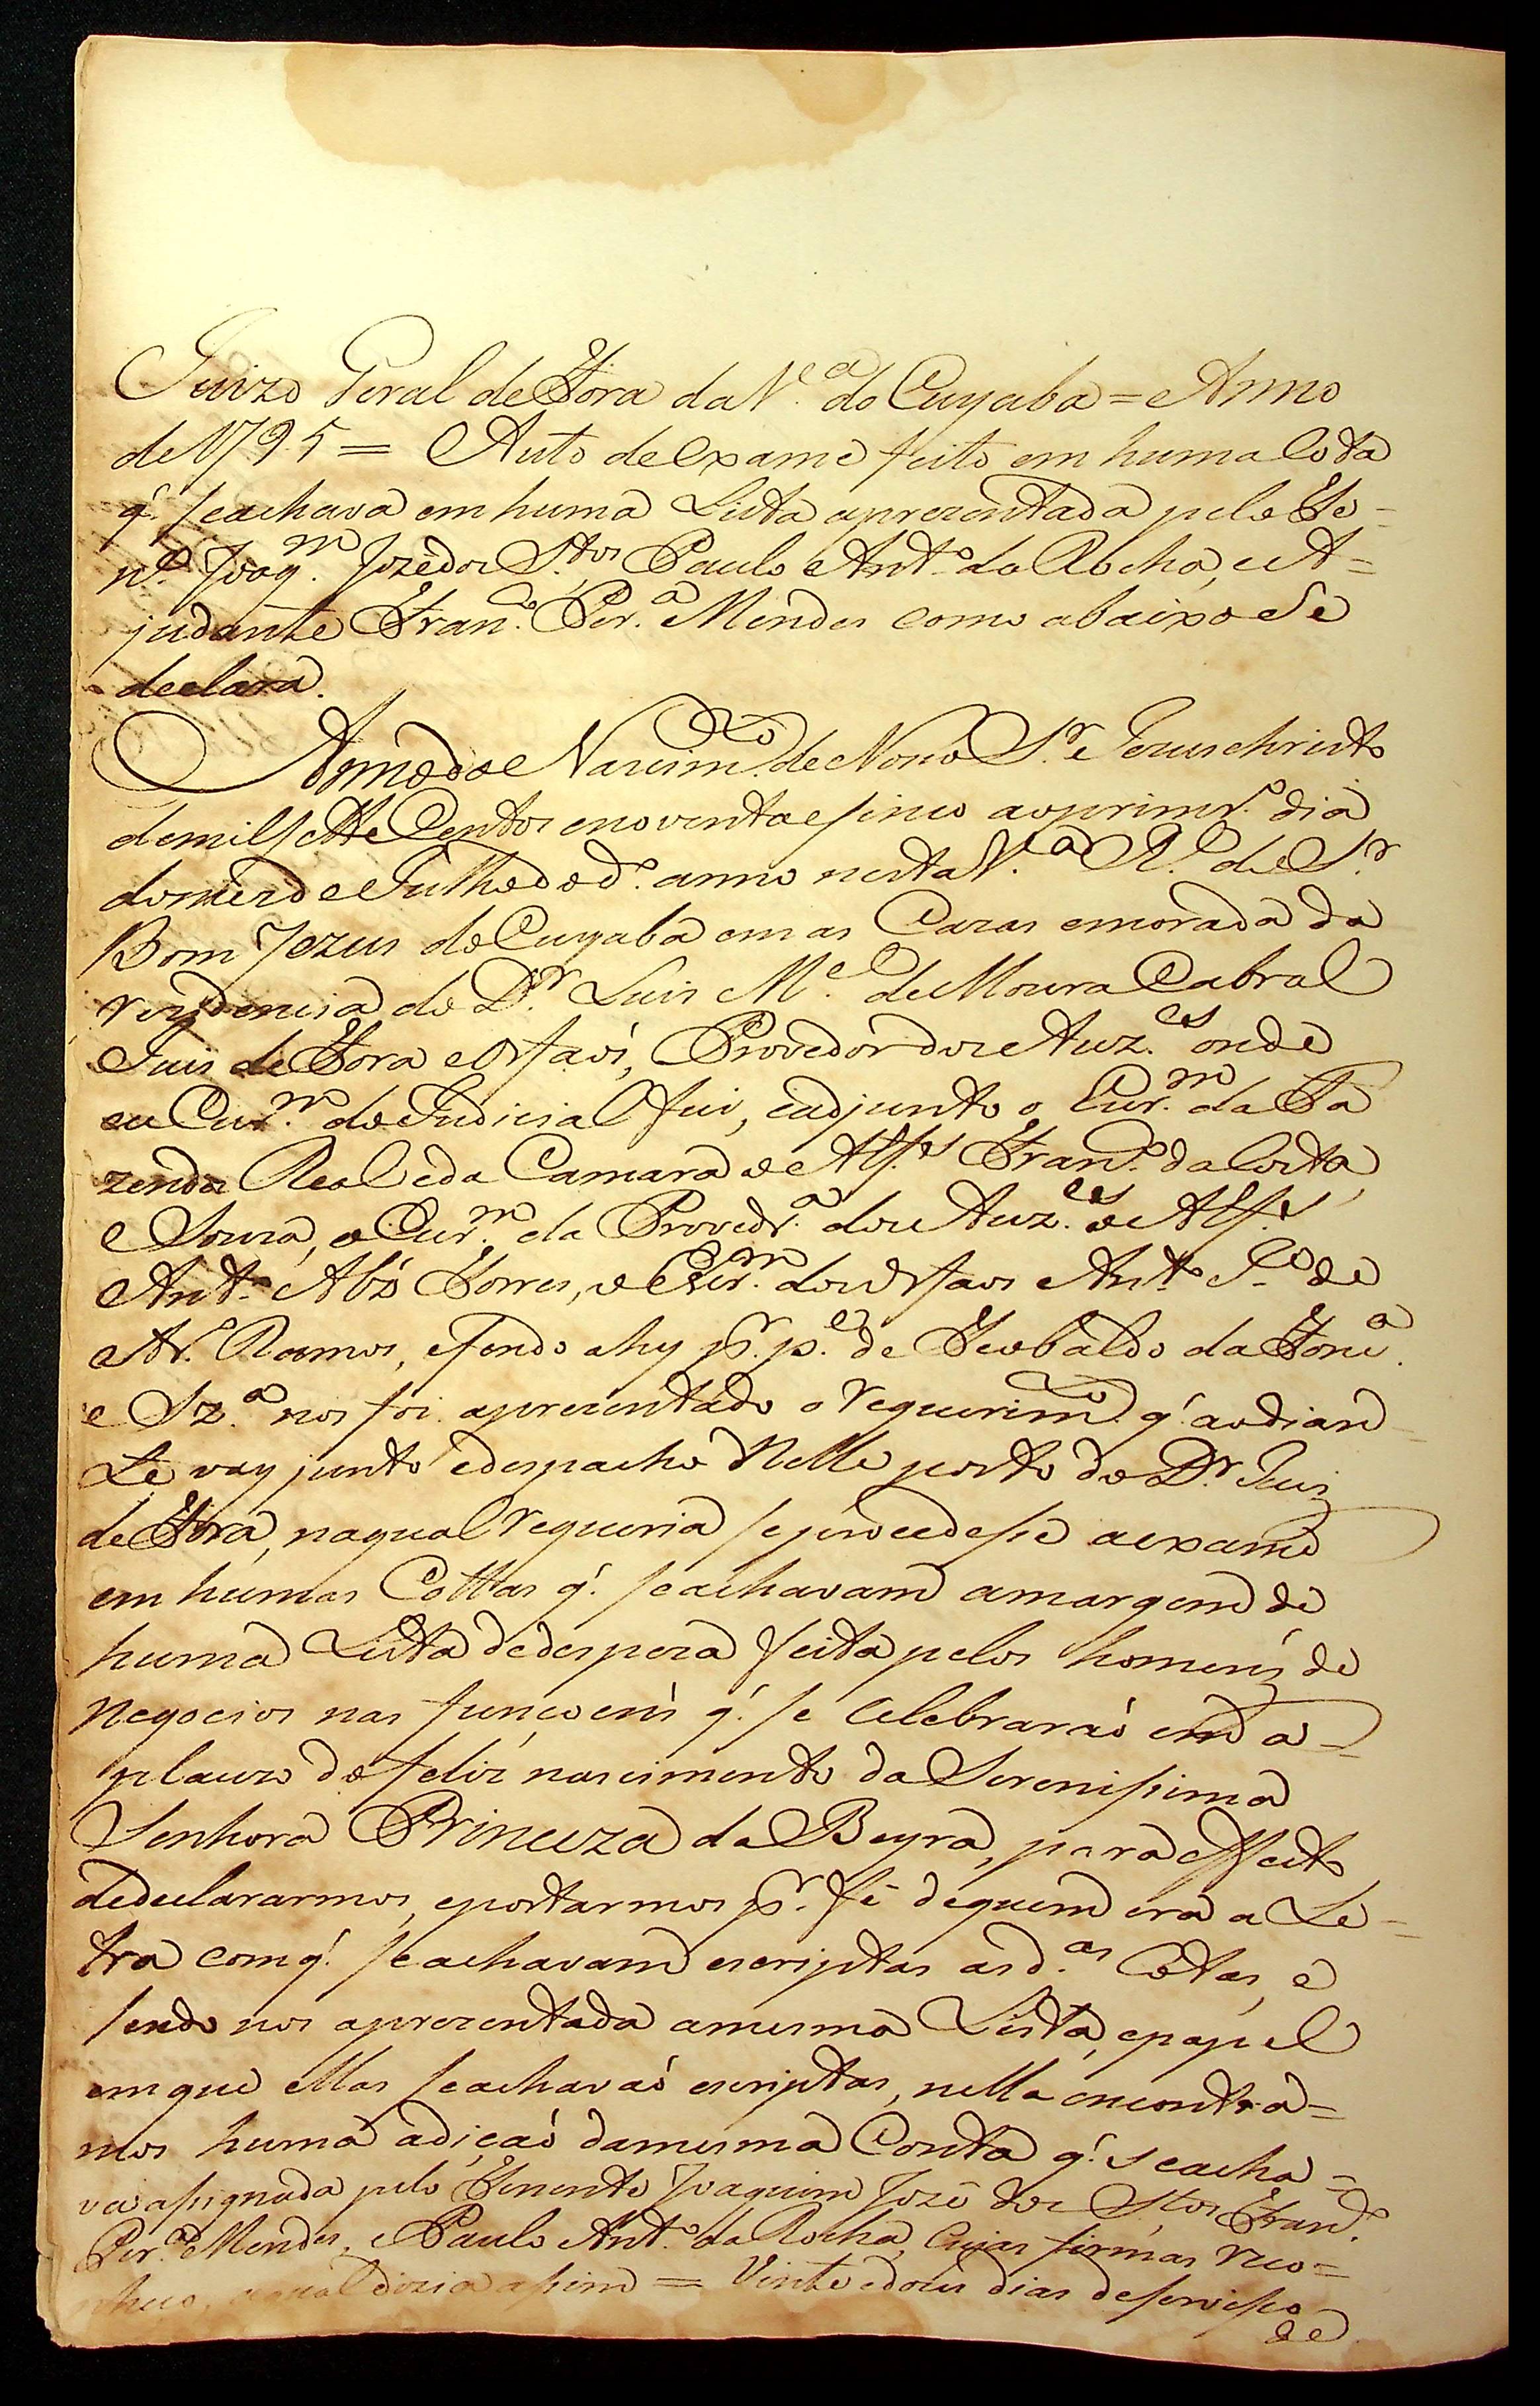 Juizo Geral de Fora da V.ª do Cuyaba = Anno
de 1795 = Auto de exame feito em huma Cota
q' se achava em huma Lista aprezentada pelo Te-
n.e Joaq.m Jozé dos S.tos Paulo Ant.o da Rocha, e A=
judante Fran.co Per.ª Mendes como abaixo se
declara.
Anno do Nascim.to de Nosso S.r Jezus christo
de mil sette Centos e noventa e sinco ao primr.o dia
do mes de Julho do d.o anno nesta V.ª R.l do S.r
Bom Jezus do Cuyabá em as Cazas e morada da
rezidencia do D.r Luis M.el de Moura Cabral
Juis de Fora e Orfaõs, Provedor dos Auz.es onde
eu Escr.m do Judicial fui, e adjunto o Escr.m da Fa
zenda Real e da Camara o Alf.es Fran.co da Costa
e Souza, o Escr.m da Provedr.ª dos Auz.es o Alf.es
Ant.o Alz' Torres, o Escr.m dos Orfaos Ant.o J.e de
Ar.o Ramos, e sendo ahy p.r p.e de Teobaldo da Fonc.ª
e Sz.ª nos foi aprezentado o requerim.to q' ao dian-
te vay junto e despacho Nelle posto do D.r Juiz
de Fora, na qual requeria se procedese a exame
em humas Cottas q' se achavam a margem de
huma Lista de despeza feita pelos homens de
Negocios nas funçoens q' se Celebraraõ em a-
plauzo do feliz nascimento da Serenissima
Senhora Princeza da Beyra, para effeito
de declararmos, e portarmos p.r fé de quem era a Le-
tra com q' se achavam escriptas as d.as Cotas, e
sendo nos aprezentada a mesma Lista, e papel
em que ellas se achavaõ escriptas, nella encontra=
mos huma adiçaõ da mesma Conta q' se acha=
va assignada pelo Tenente Joaquim Jozé dos S.tos Fran.co
Per.ª Mendes, e Paulo Ant.o da Rocha, Cujas firmas reco=
nheço, a qual dizia assim = Vinte e dous dias de serviço
de